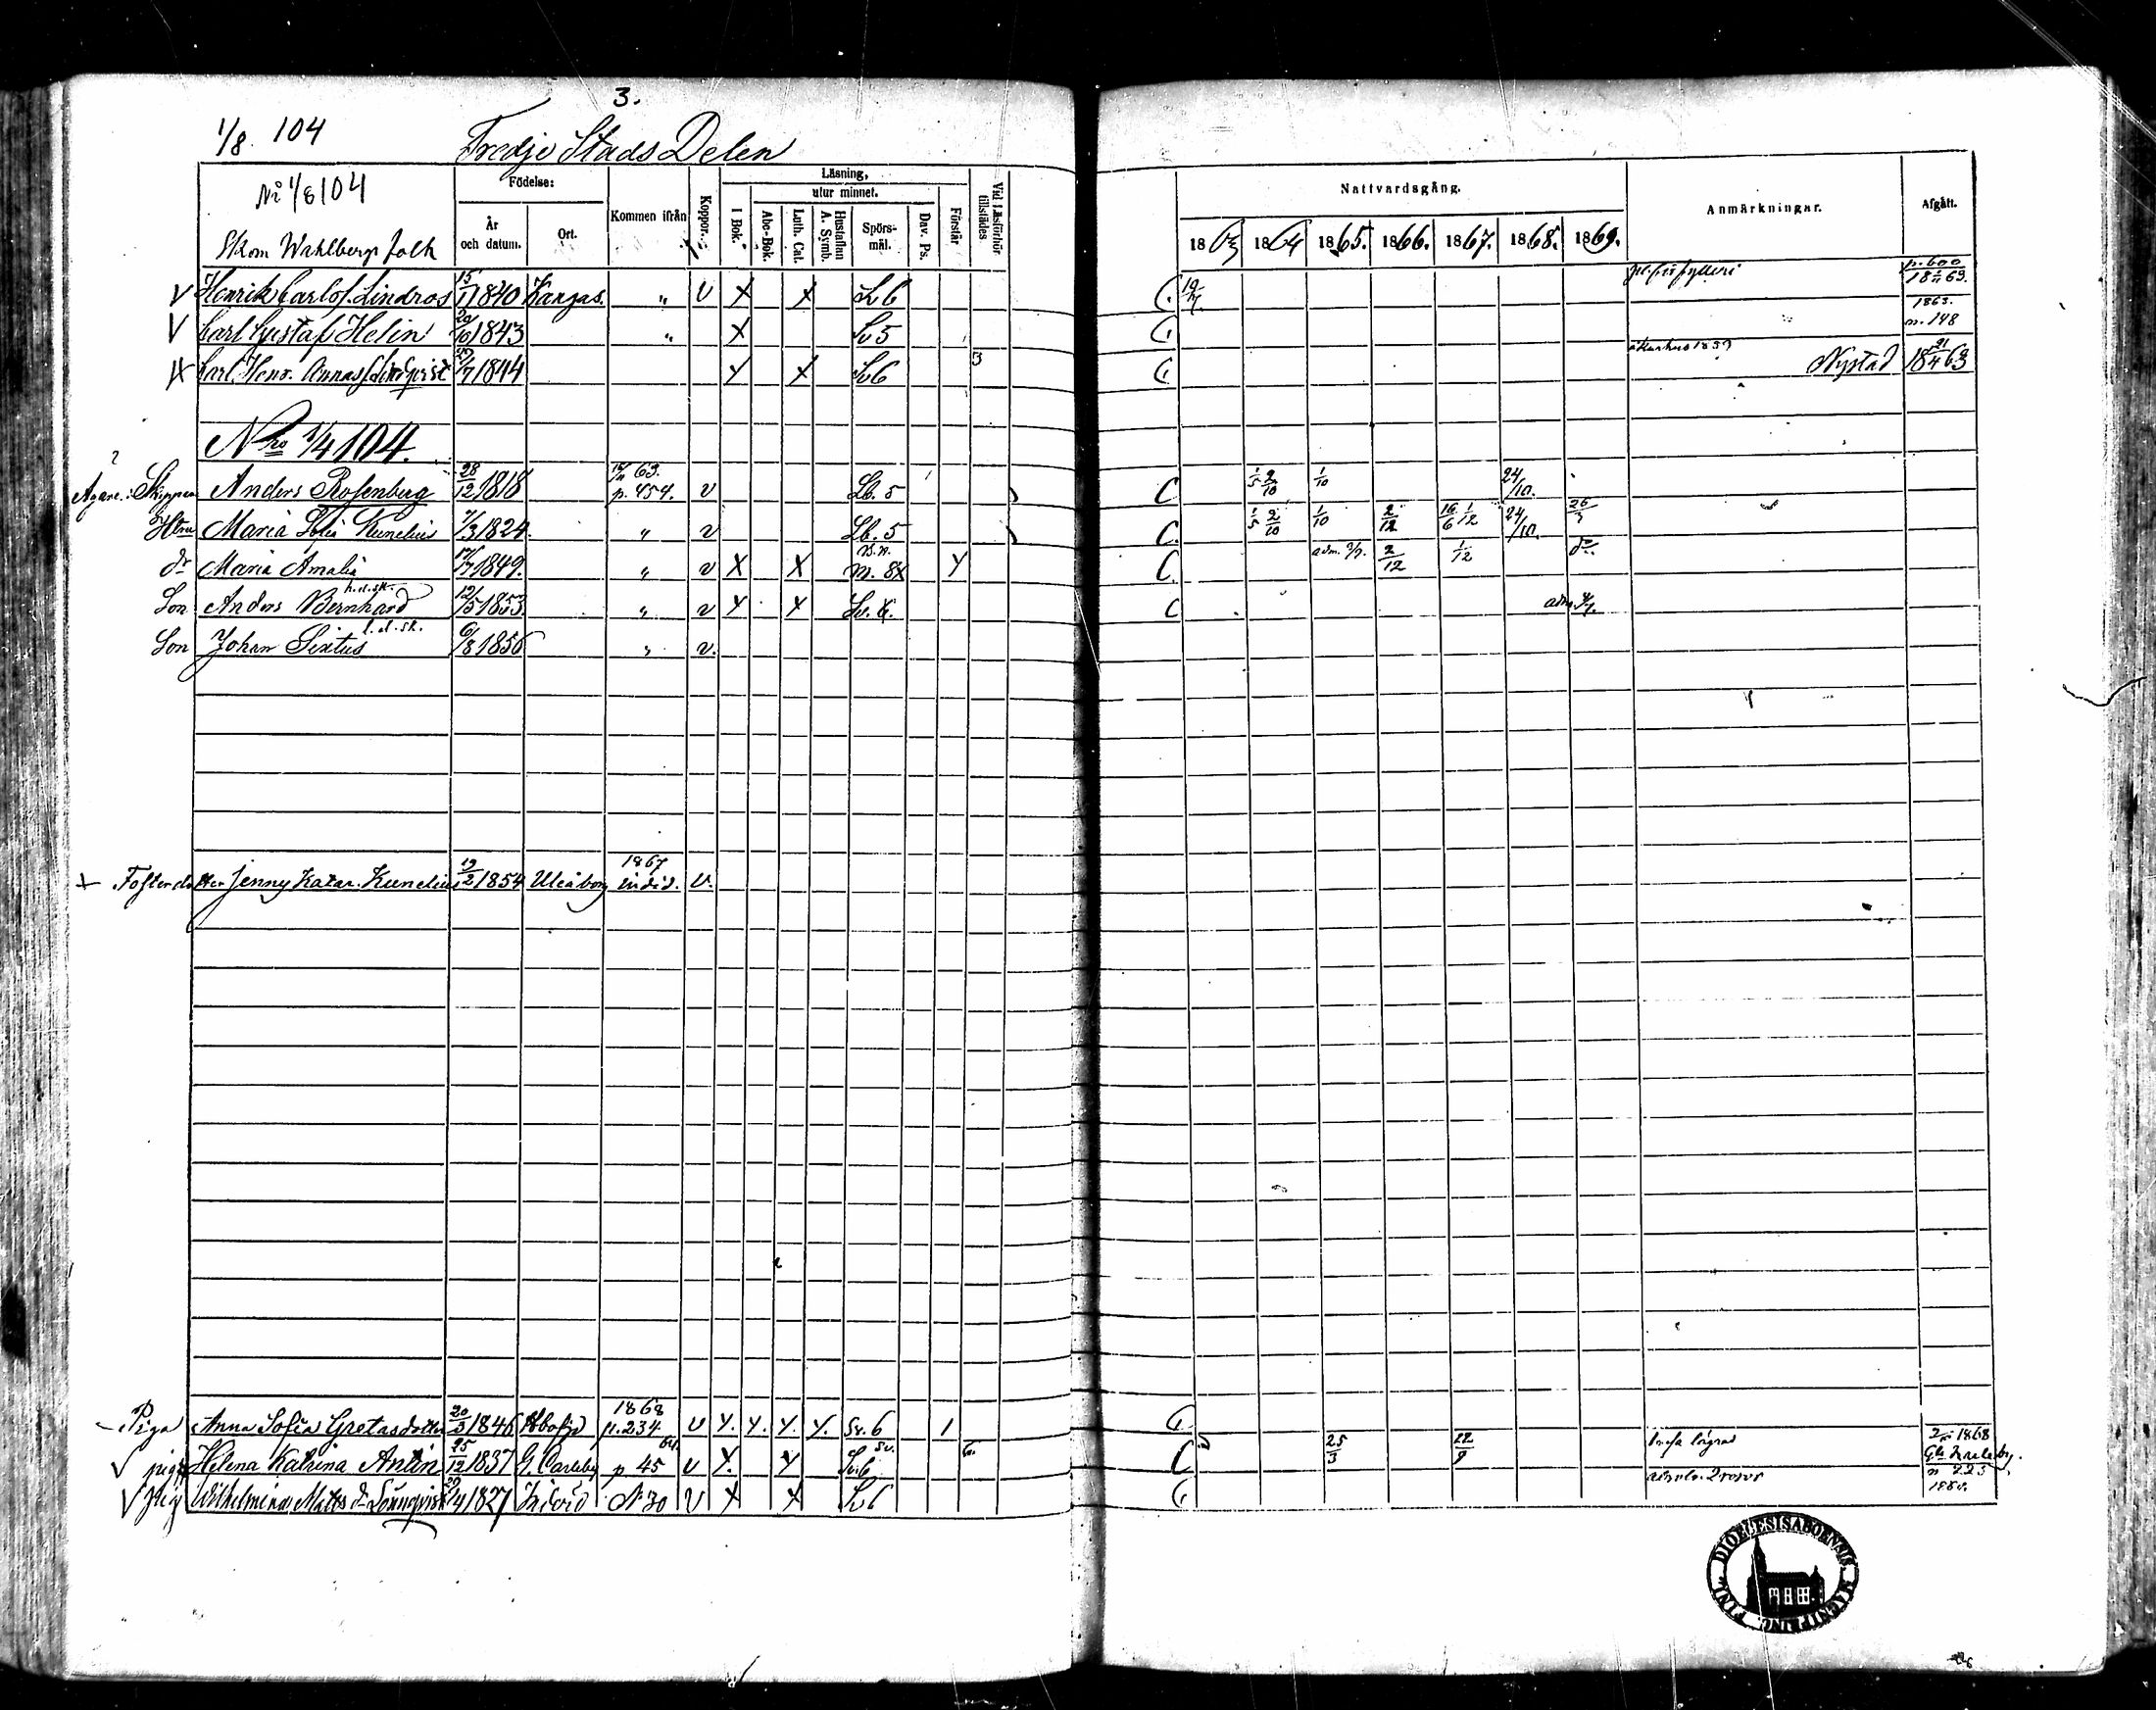 3.
1/8. 104
Tredje Stads Delen
No 1/8 104
Skom Wahlbergs folk
Födelse:
År och datum.
Ort.
Kommen ifrån
Koppor.
Läsning,
utur minnet.
I Bok.
Abc-Bok.
Luth. Cat.
Hustaflan A. Symb.
Spörs-mål.
Dav. Ps.
Förstår
Vid Läsförhör tillstädes
Nattvardsgång.
1863 1864 1865. 1866. 1867. 1868. 1869.
Anmärkningar.
Afgått.
V Henrik Carlsf. Lindros 15/11 1840 Kangas. " V X X Lb C. 19/4 p. 600
V Carl Gustaf Helin 20/10 1843 " X Sv 5 C 1863. n. 148
Carl Henr. Annas 1844 X X Sv 6 C Nystad 1863
Nro 1/4 104.
Agare: Skeppar Anders Rosenberg 28/12 1818 63. p. 454. v Lb. 5 C 1/5 2/10 1/10 24/10.
Hstru Maria Sofia Kunelius 7/3 1824. " v Lb. 5 C. 1/5 2/10 1/10 2/12 16/6 1/12 24/10. 26/3
dr Maria Amalia 17/7 1849. " v X X m. 8X Y C. adm. 2/12 1/12 do
Son Anders Bernhard h.d.sk. 12/5 1853 " v Y Y Sv. 6. C adm.
Son Johan Sixtus l.d.sk. 6/8 1856 " v.
+ Fosterdotter Jenny Katar. Kunelius 19/2 1854 Uleåborg 1867 indid. v.
Piga Anna Sofia Gretasdotter 20/3 1846 Abofjd 1868 p. 234 v Y. Y. Y. Y. Sv. 6 1 C.
V piga Helena Katrina Antin 25/12 1837 G. Carleby p 45 v Y. Y Sv. 6 C 25/3 22/9 1868 Gla Karleby.
V Pig Wilhelmina Matts dr Lönnqvist 1827 No 30 V X X Sv 6 C n 223
DIOECESIS ABOENSIS MAGNI PRINC. FINL.